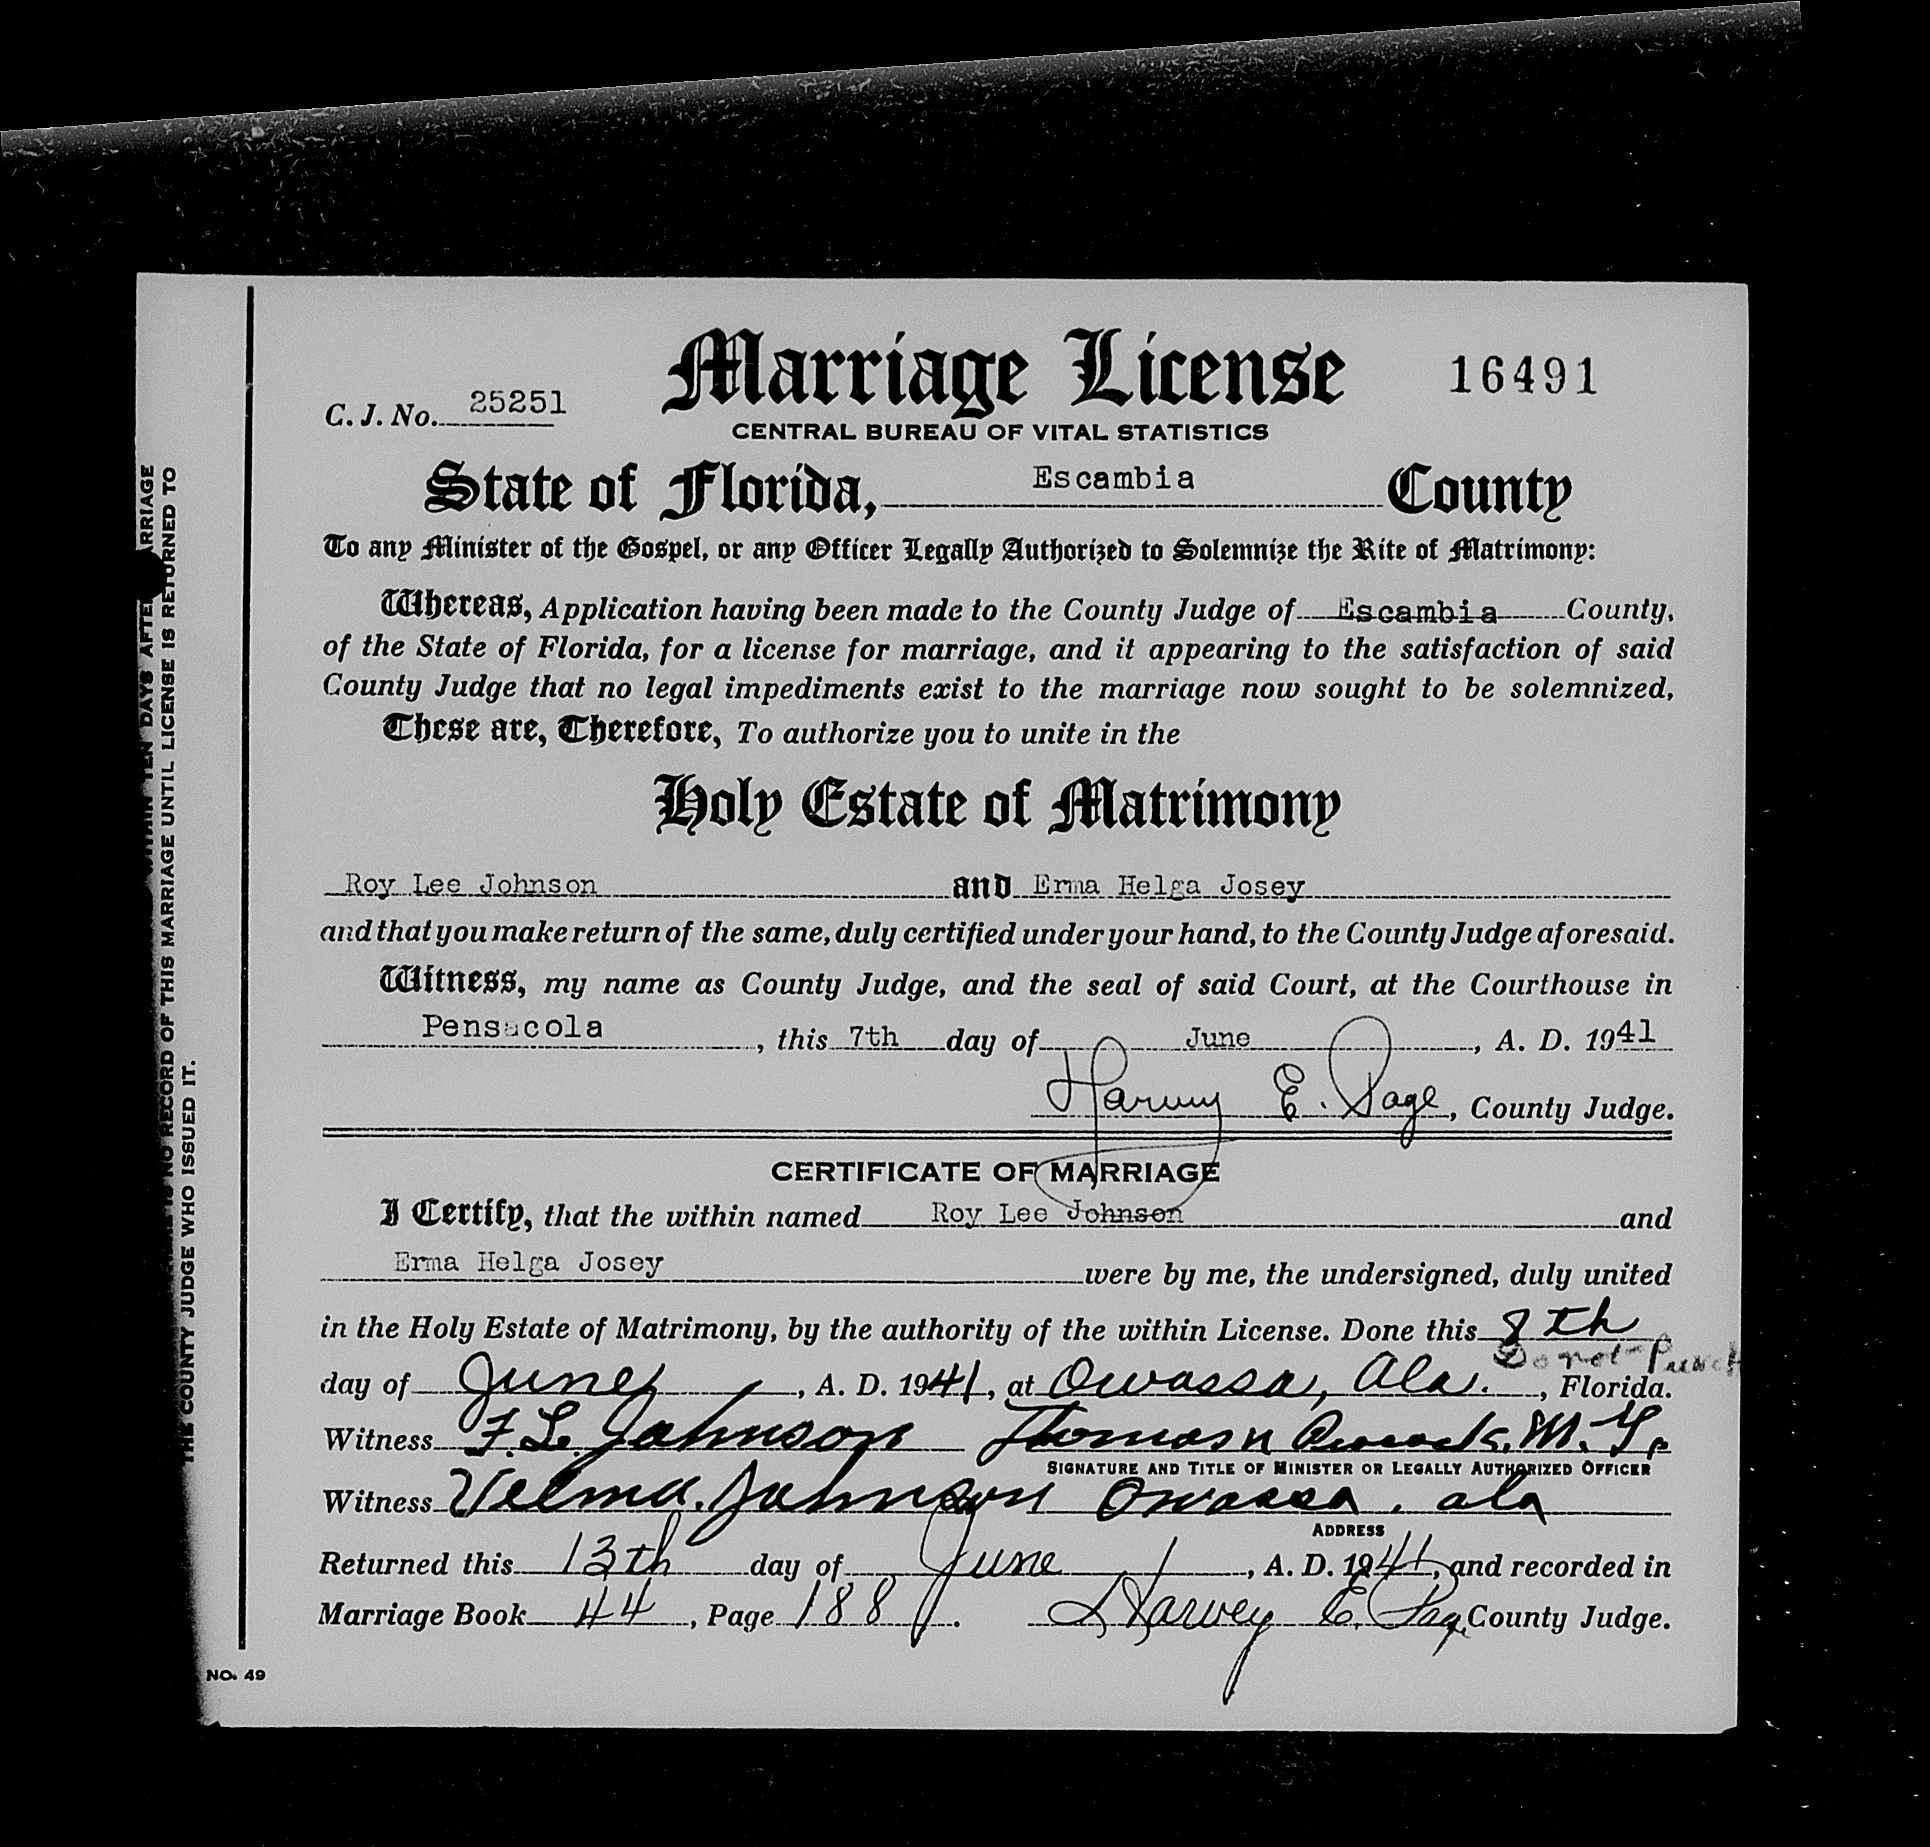 Marriage License
16491
C. J. No. 25251
CENTRAL BUREAU OF VITAL STATISTICS
State of Florida, Escambia County
To any Minister of the Gospel, or any Officer Legally Authorized to Solemnize the Rite of Matrimony:
Whereas, Application having been made to the County Judge of Escambia County,
of the State of Florida, for a license for marriage, and it appearing to the satisfaction of said
County Judge that no legal impediments exist to the marriage now sought to be solemnized,
These are, Therefore, To authorize you to unite in the
Holy Estate of Matrimony
Roy Lee Johnson and Erma Helga Josey
and that you make return of the same, duly certified under your hand, to the County Judge aforesaid.
Witness, my name as County Judge, and the seal of said Court, at the Courthouse in
Pensacola, this 7th day of June, A. D. 1941
Harvey E. Page, County Judge.
CERTIFICATE OF MARRIAGE
I Certify, that the within named Roy Lee Johnson and
Erma Helga Josey were by me, the undersigned, duly united
in the Holy Estate of Matrimony, by the authority of the within License. Done this 8th
Do not Punch
day of June, A. D. 1941, at Owassa, Ala., Florida.
Witness F. L. Johnson Thomas N
SIGNATURE AND TITLE OF MINISTER OR LEGALLY AUTHORIZED OFFICER
Witness Velma Johnson Owassa, ala
ADDRESS
Returned this 13th day of June, A. D. 1941, and recorded in
Marriage Book 44, Page 188. Harvey E. Page County Judge.
NO. 49
TEN DAYS AFTER MARRIAGE
IS NO RECORD OF THIS MARRIAGE UNTIL LICENSE IS RETURNED TO
THE COUNTY JUDGE WHO ISSUED IT.